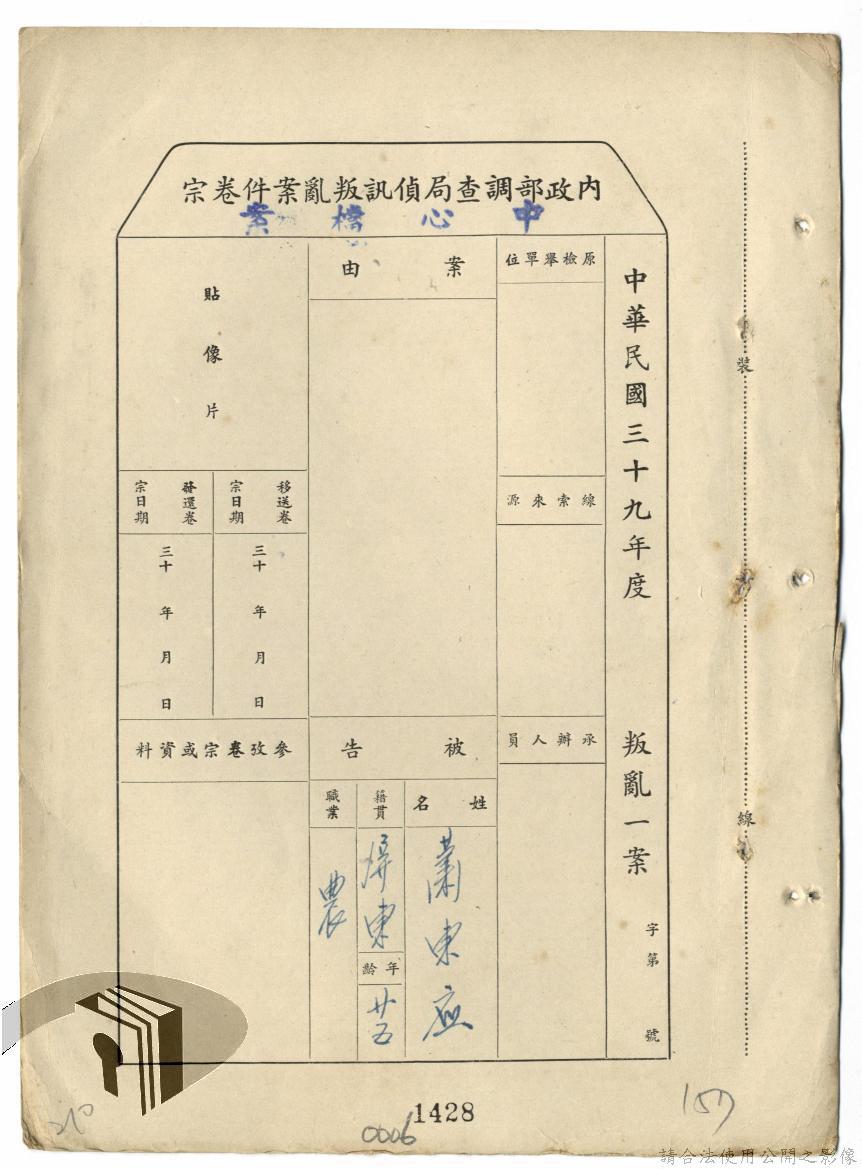 內政部調查局偵訊叛亂案件卷宗
中心檔案
中華民國三十九年度
叛亂一案
字第 號
裝
線
原檢舉單位
線索來源
承辦人員
案由
被告
姓名
蕭東應
籍貫
屏東
年齡
廿五
職業
農
貼像片
移送卷宗日期
三十 年 月 日
發還卷宗日期
三十 年 月 日
參攷卷宗或資料
1428
0006
157
請合法使用公開之影像